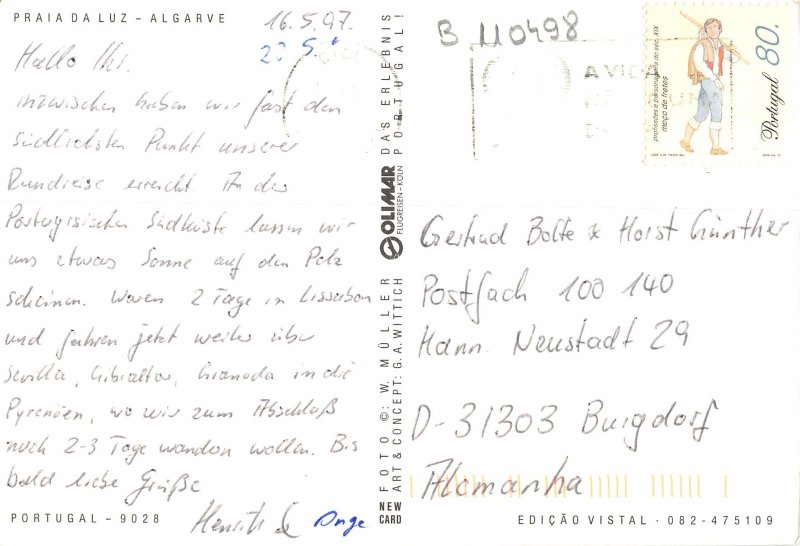 PRAIA DA LUZ - ALGARVE
16.5.97.
Hallo Ihr.
inzwischen haben wir fast den
südlichsten Punkt unserer
Rundreise erreicht An der
Portugisischen Südküste lassen wir
uns etwas Sonne auf den Pelz
scheinen. Waren 2 Tage in Lissabon
und fahren jetzt weiter über
Sevilla, Gibraltar, Granada in die
Pyrenäen, wo wir zum Abschluß
noch 2-3 Tage wandern wollen. Bis
bald liebe Grüße
Inge
PORTUGAL - 9028
DAS ERLEBNIS
PORTUGAL!
OLIMAR
FLUGREISEN-KÖLN
FOTO ©: W. MÜLLER
ART & CONCEPT: G. A. WITTICH
NEW
CARD
B 110498
profissões e personagens do séc. XIX
moço de fretes
Portugal 80.
Gertrud Bolte & Horst Günther
Postfach 100 140
Hann. Neustadt 29
D-31303 Burgdorf
Alemanha
EDIÇÃO VISTAL · 082-475109